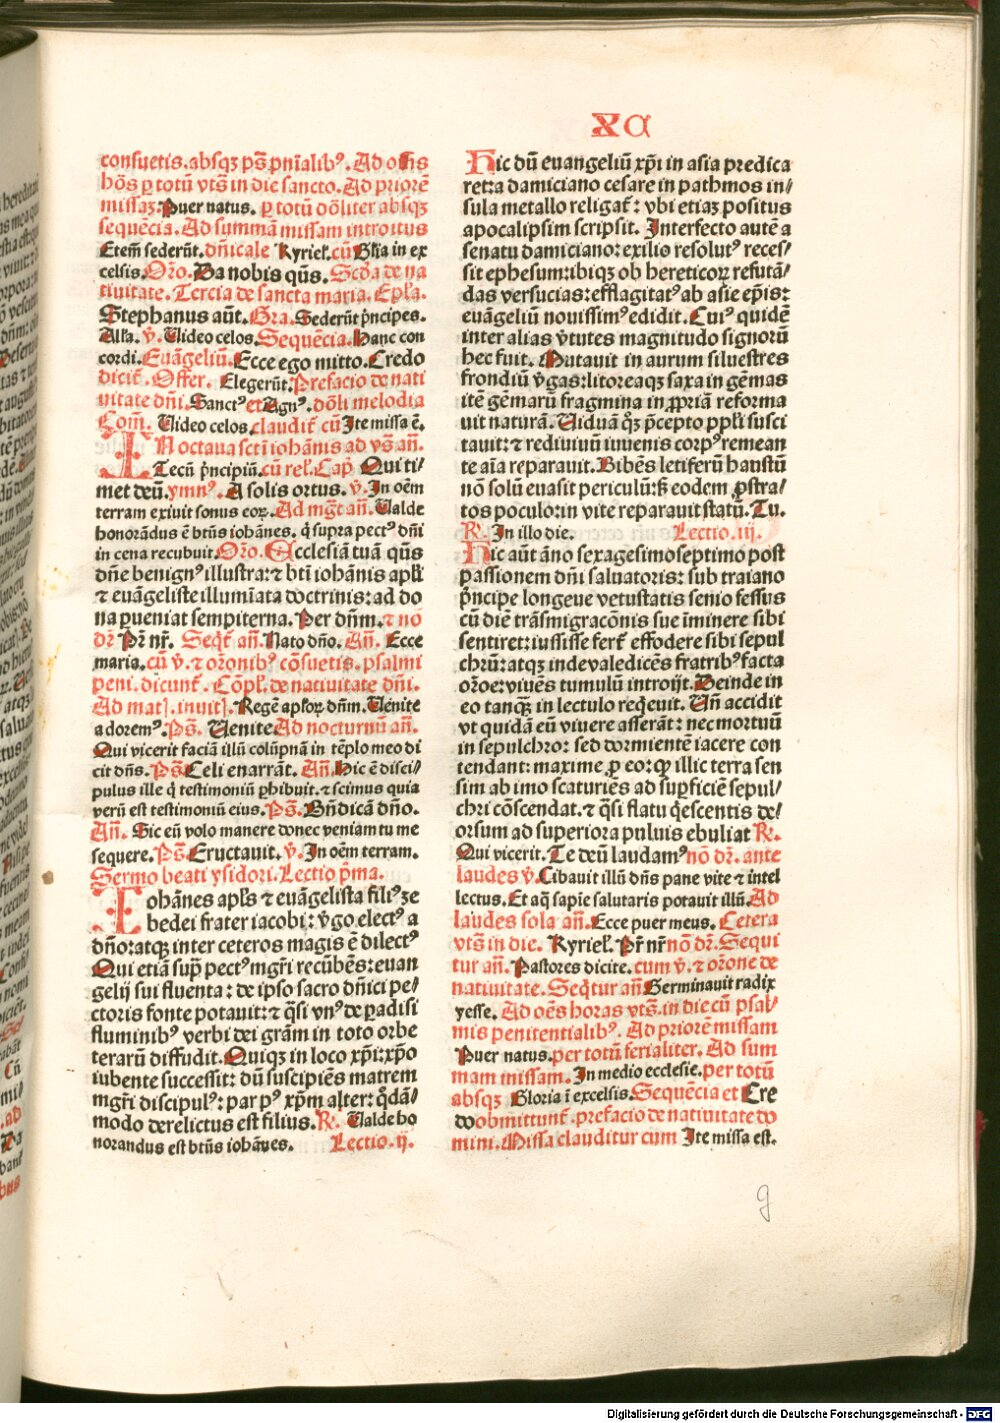 XC
consuetis.absqꝫ ps̄ pn̄ialibꝰ. Ad oēs
hōs p totū vts̄ in die sancto. Ad priorē
missaꝫ. Puer natus. p totū dōliter absqꝫ
sequēcia. Ad summā missam introitus
Etem̄ sederūt. dn̄icale Kyriel'. cū Gl'ia in ex
celsis. Orō. Da nobis qūs. Scd'a de na
tiuitate. Tercia de sancta maria. Epl'a.
Stephanus aūt. Gra. Sederūt pncipes.
All'a. v̄. Video celos. Sequēcia. Hanc con
cordi. Euāgeliū. Ecce ego mitto. Credo
dicit̄. Offer. Elegerūt. Prefacio de nati
uitate dn̄i. Sanctꝰ et Agnꝰ. dōli melodia
Com̄. Video celos. claudit̄ cū Ite missa ē.
IN octaua sctī iohānis ad vs̄ an̄.
Tecū pncipiū. cū rel'. Cap̄ Qui ti⸗
met deū. ymnꝰ. A solis ortus. v̄. In oēm
terram exiuit sonus eoꝝ. Ad mgt̄ an̄. Valde
honorādus ē btn̄s iohānes. q̄ supra pectꝰ dn̄i
in cena recubuit. Orō. Ecclesiā tuā qūs
dn̄e benignꝰ illustra: ⁊ btī iohānis apl'i
⁊ euāgeliste illumīata doctrinis: ad do
na pueniat sempiterna. Per dn̄m. ⁊ nō
dr̄ Pr̄ nr̄. Seqt̄ an̄. Nato dn̄o. An̄. Ecce
maria. cū v̄. ⁊ orōnibꝰ cōsuetis. psalmi
peni. dicunt̄. Cōpl'. de natiuitate dn̄i.
Ad mat]. inuit]. Regē apl'oꝝ dn̄m. Uēnite
adoremꝰ. Ps̄. Uenite Ad nocturnū an̄.
Qui vicerit faciā illū colūpnā in tēplo meo di
cit dn̄s. Ps̄ Celi enarrāt. An̄. Hic ē disci⸗
pulus ille q̄ testimoniū phibuit. ⁊ scimus quia
verū est testimoniū eius. Ps̄. Bn̄dicā dn̄o.
An̄. Sic eū volo manere donec veniam tu me
sequere. Ps̄. Eructauit. v̄. In oēm terram.
Sermo beati ysidori. Lectio pma.
Iohānes apl's ⁊ euāgelista filiꝰ ze
bedei frater iacobi: v̄go electꝰ a
dn̄o: atqꝫ inter ceteros magis ē dilectꝰ
Qui etiā sup̄ pectꝰ mgr̄i recūbēs: euan
gelij sui fluenta: de ipso sacro dn̄ici pe⸗
ctoris fonte potauit: ⁊ q̄si vnꝰ de padisi
fluminibꝰ verbi dei grām in toto orbe
terarū diffudit. Quiqꝫ in loco xp̄i: xp̄o
iubente successit: dū suscipiēs matrem
mgr̄i discipulꝰ: par pꝰ xp̄m alter: q̊dā⸗
modo derelictus est filius. R̄. Valde ho
norandus est btn̄s iohānes. Lectio.ij.
Hic dū euangeliū xp̄i in asia predica
ret: a damiciano cesare in pathmos in⸗
sula metallo religat̄: vbi etiaꝫ positus
apocalipsim scripsit. Interfecto autē a
senatu damiciano: exilio resolutꝰ reces⸗
sit ephesum: ibiqꝫ ob hereticoꝝ refutā⸗
das versucias: efflagitatꝰ ab asie ep̄is:
euāgeliū nouissimꝰ edidit. Cuiꝰ quidē
inter alias v̄tutes magnitudo signorū
hec fuit. Mutauit in aurum siluestres
frondiū v̄gas: litoreaqꝫ saxa in gēmas
itē gēmarū fragmina in ꝓpriā reforma
uit naturā. Viduā qꝫ pcepto ppl'i susci
tauit: ⁊ rediuiuū iuuenis corpꝰ remean
te aīa reparauit. Bibēs letiferū haustū
nō solū euasit periculū: sꝫ eodem ꝓstra⸗
tos poculo: in vite reparauit statū. Tu.
R̄. In illo die. Lectio.iij.
Hic aūt āno sexagesimoseptimo post
passionem dn̄i saluatoris: sub traiano
pncipe longeue vetustatis senio fessus
cū diē trāsmigracōnis sue iminere sibi
sentiret: iussisse fert̄ effodere sibi sepul
chrū: atqꝫ inde valedicēs fratribꝰ facta
orōe: viuēs tumulū introijt. Deinde in
eo tanqꝫ in lectulo reqeuit. Un̄ accidit
vt quidā eū viuere asserāt: nec mortuū
in sepulchro: sed dormientē iacere con
tendant: maxime ꝓ eo: qꝫ illic terra sen
sim ab imo scaturiēs ad supficiē sepul⸗
chri cōscendat. ⁊ q̄si flatu q̄escentis de⸗
orsum ad superiora puluis ebuliat R̄.
Qui vicerit. Te deū laudamꝰ nō dr̄. ante
laudes v̄. Cibauit illū dn̄s pane vite ⁊ intel
lectus. Et aq̄ sapie salutaris potauit illū. Ad
laudes sola an̄. Ecce puer meus. Cetera
vts̄ in die. Kyriel'. Pr̄ nr̄ nō dr̄. Sequi
tur an̄. Pastores dicite. cum v̄. ⁊ orōne de
natiuitate. Seqt̄ur an̄ Germinauit radix
yesse. Ad oēs horas vts̄. in die cū psal⸗
mis penitentialibꝰ. Ad priorē missam
Puer natus. per totū ferialiter. Ad sum
mam missam. In medio ecclesie. per totū
absqꝫ Gloria ī excelsis. Sequēcia et Cre
do obmittunt̄. prefacio de natiuitate do
mini. Missa clauditur cum Ite missa est.
g
Digitalisierung gefördert durch die Deutsche Forschungsgemeinschaft - DFG